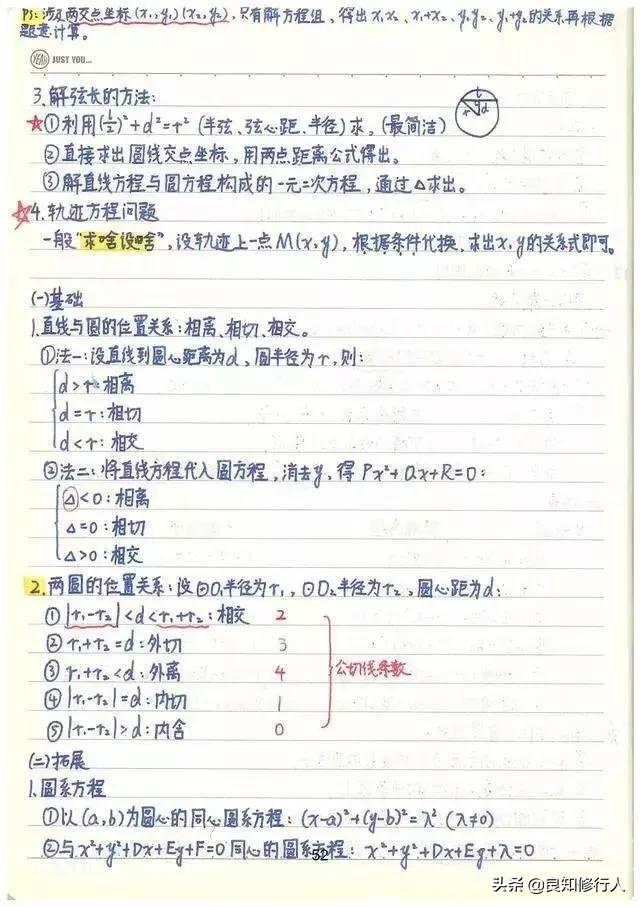 PS:涉及两交点坐标(x₁,y₁)(x₂,y₂),只有解方程组,得出x₁x₂、x₁+x₂、y₁y₂、y₁+y₂的关系再根据
题意计算。
YEAH JUST YOU...
3.解弦长的方法:
☆①利用(l/2)²+d²=r²(半弦、弦心距、半径)求。(最简洁)
l
r d
②直接求出圆线交点坐标,用两点距离公式得出。
③解直线方程与圆方程构成的一元二次方程,通过△求出。
☆4.轨迹方程问题
一般“求啥设啥”,设轨迹上一点M(x,y),根据条件代换,求出x,y的关系式即可。
(一)基础
1.直线与圆的位置关系:相离、相切、相交。
①法一:设直线到圆心距离为d,圆半径为r,则:
d>r:相离
d=r:相切
d<r:相交
②法二:将直线方程代入圆方程,消去y,得Px²+Qx+R=0:
△<0:相离
△=0:相切
△>0:相交
2.两圆的位置关系:设⊙O₁半径为r₁,⊙O₂半径为r₂,圆心距为d:
①|r₁-r₂|<d<r₁+r₂:相交 2
②r₁+r₂=d:外切 3
③r₁+r₂<d:外离 4
公切线条数
④|r₁-r₂|=d:内切 1
⑤|r₁-r₂|>d:内含 0
(二)拓展
1.圆系方程
①以(a,b)为圆心的同心圆系方程:(x-a)²+(y-b)²=λ²(λ≠0)
②与x²+y²+Dx+Ey+F=0同心的圆系方程:x²+y²+Dx+Ey+λ=0
52
头条 @良知修行人